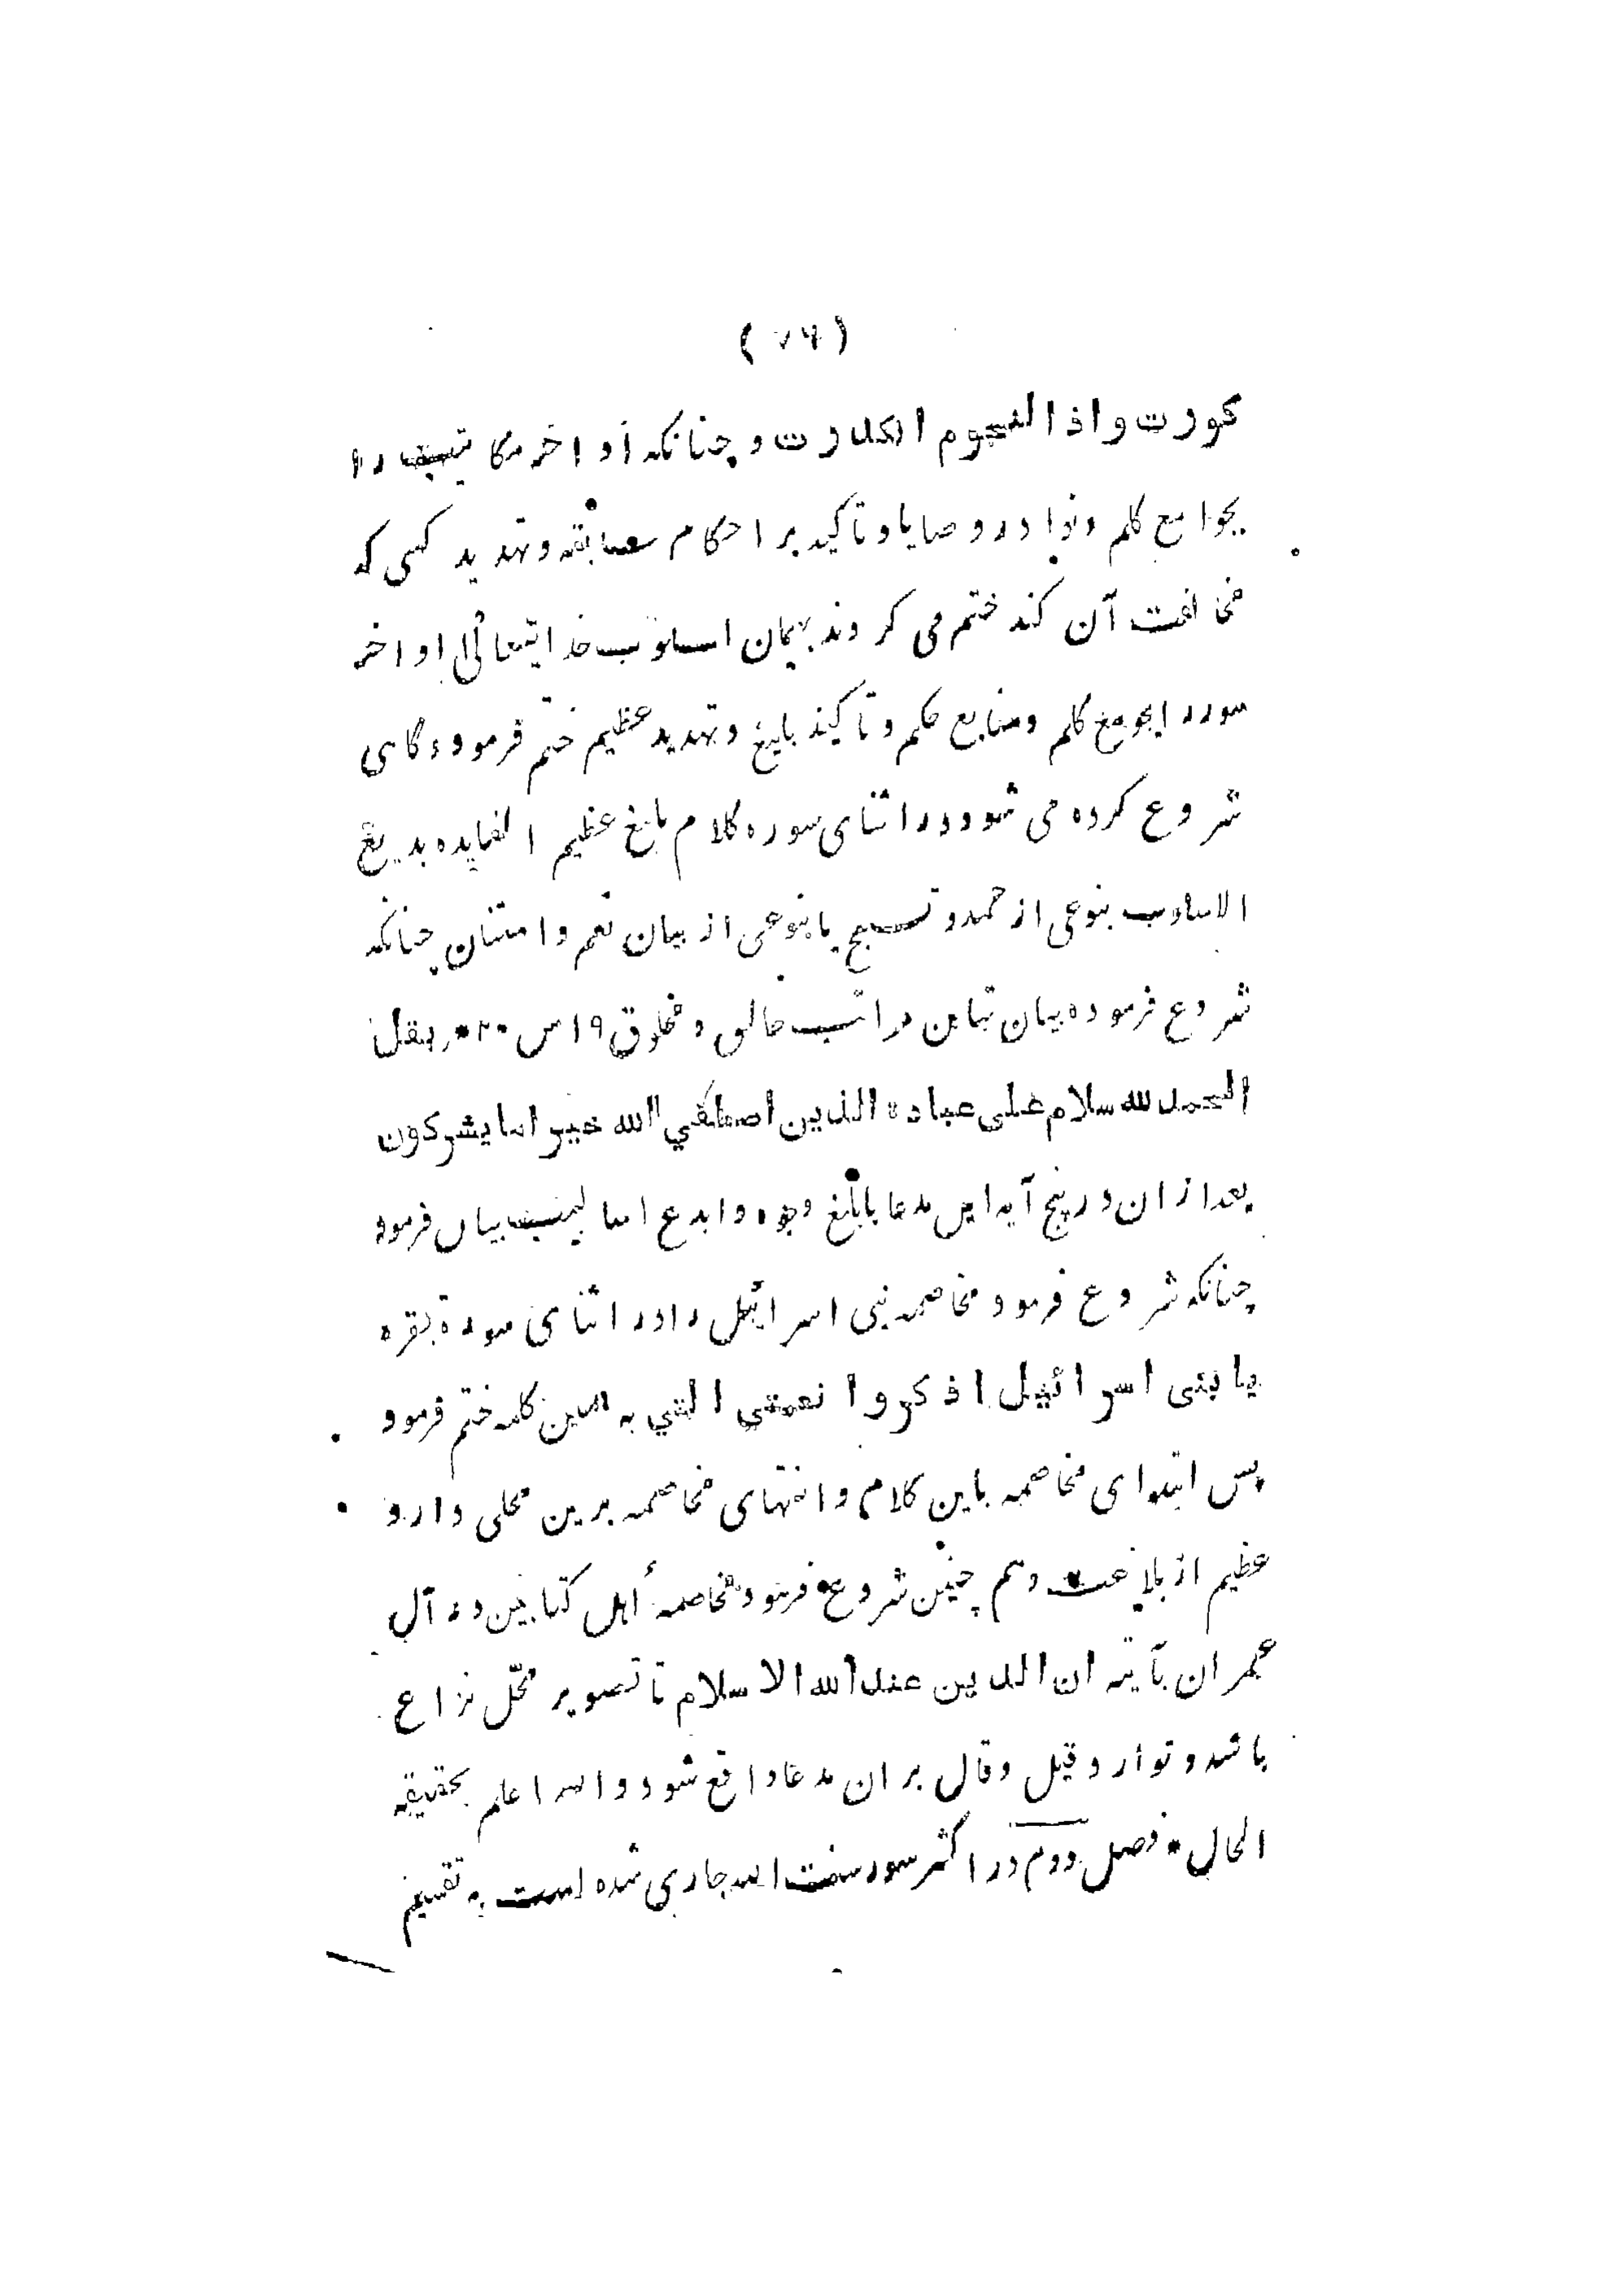 (۷۶)
کورت واذا النجوم انکدرت و چنانکه أواخر مکاتیب را
بجوامع کلم ونوادر وصایا و تاکید بر احکام سابقه و تهدید کسی که
مخالفت آن کند ختم می کردند بهمان اسلوب خدایتعالی اواخر
سور را بجوامع کلم ومنابع حکم و تاکید بلیغ و تهدید عظیم ختم فرموده گاهی
شروع کرده می شود در اثنای سوره کلام بلیغ عظیم الفایده بدیع
الاسلوب بنوعی از حمد و تسبیح یا بنوعی از بیان نعم و امتنان چنانکه
شروع فرموده بیان تباین مراتب خالق و مخلوق ۱۹ س ۲۰ ر بقل
الحمد لله سلام علی عباده الذین اصطفي الله خیر اما یشرکون
بعد ازان در پنج آیه این مدعا بابلغ وجوه و ابدع اسالیب بیان فرمود
چنانکه شروع فرمود مخاصمه بنی اسرائیل را در اثنای سورة بقره
یا بنی اسرائیل اذکروا نعمتي التي به همین کلمه ختم فرمود
پس ابتدای مخاصمه باین کلام و انتهای مخاصمه برین محلی دارد
عظیم از بلاغت وهم چنین شروع فرمود مخاصمهٔ أهل کتابین در آل
عمران بآیته ان الدین عند الله الاسلام تا تصویر محّل نزاع
باشد و توارد قیل وقال بران مدعا واقع شود والله اعلم بحقیقه
الحال * فصل دوم در اکثر سور سنت الله جاری شده است به تقسیم